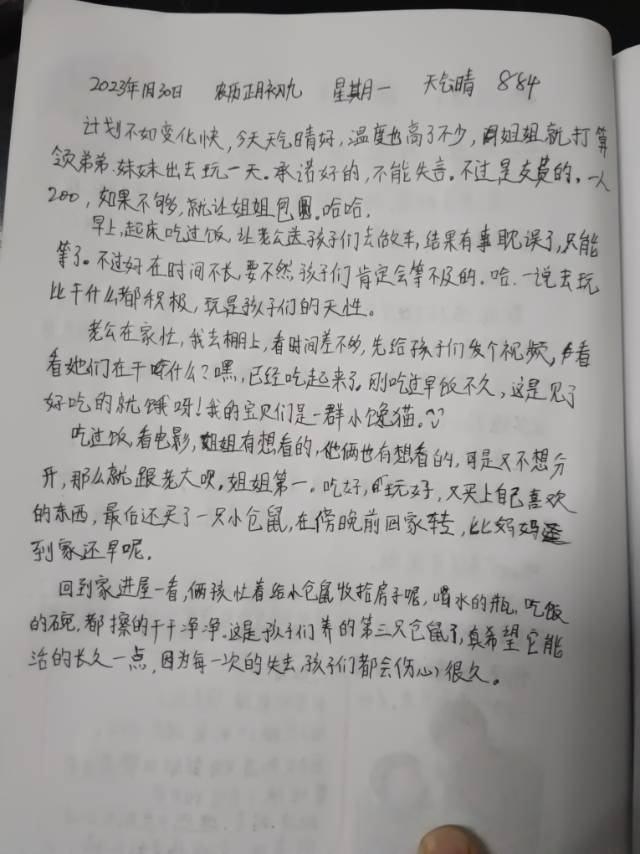 2023年1月30日 农历正月初九 星期一 天气晴 884
计划不如变化快，今天天气晴好，温度也高了不少，姐姐就打算
领弟弟、妹妹出去玩一天。承诺好的，不能失言。不过是支费的，一人
200，如果不够，就让姐姐包圆。哈哈.
早上，起床吃过饭，让老公送孩子们去做车，结果有事耽误了，只能
等了。不过好在时间不长，要不然孩子们肯定会等不及的。哈.一说去玩
比干什么都积极，玩是孩子们的天性。
老公在家忙，我去棚上，看时间差不多，先给孩子们发个视频，看
看她们在干啥什么？嘿，已经吃起来了。刚吃过早饭不久，这是见了
好吃的就饿呀！我的宝贝们是一群小馋猫。
吃过饭，看电影，姐姐有想看的，他俩也有想看的，可是又不想分
开，那么就跟老大呗。姐姐第一。吃好，玩好，又买上自己喜欢
的东西，最后还买了一只小仓鼠，在傍晚前回家转，比妈妈
到家还早呢.
回到家进屋一看，俩孩忙着给小仓鼠收拾房子呢，喝水的瓶，吃饭
的碗，都擦的干干净净。这是孩子们养的第三只仓鼠了，真希望它能
活的长久一点，因为每一次的失去，孩子们都会伤心很久。